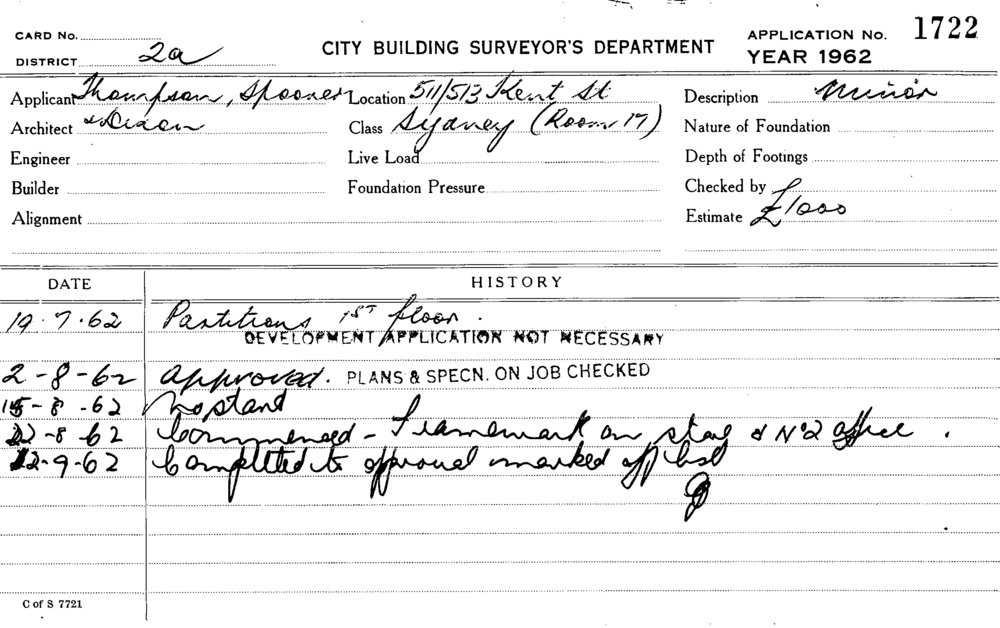 CARD No.
DISTRICT 2a
CITY BUILDING SURVEYOR'S DEPARTMENT
APPLICATION No. 1722
YEAR 1962
Applicant Thompson, Spooner
Location 511/513 Kent St
Description Minor
Architect & Dixon
Class Sydney (Room 17)
Nature of Foundation
Engineer
Live Load
Depth of Footings
Builder
Foundation Pressure
Checked by
Alignment
Estimate £1000
DATE HISTORY
19.7.62 Partitions 1ST floor.
DEVELOPMENT APPLICATION NOT NECESSARY
2-8-62 Approved. PLANS & SPECN. ON JOB CHECKED
15-8-62 No start
22-8-62 Commenced - Framework on & No2 office.
12-9-62 Completed to approval marked off list
C of S 7721